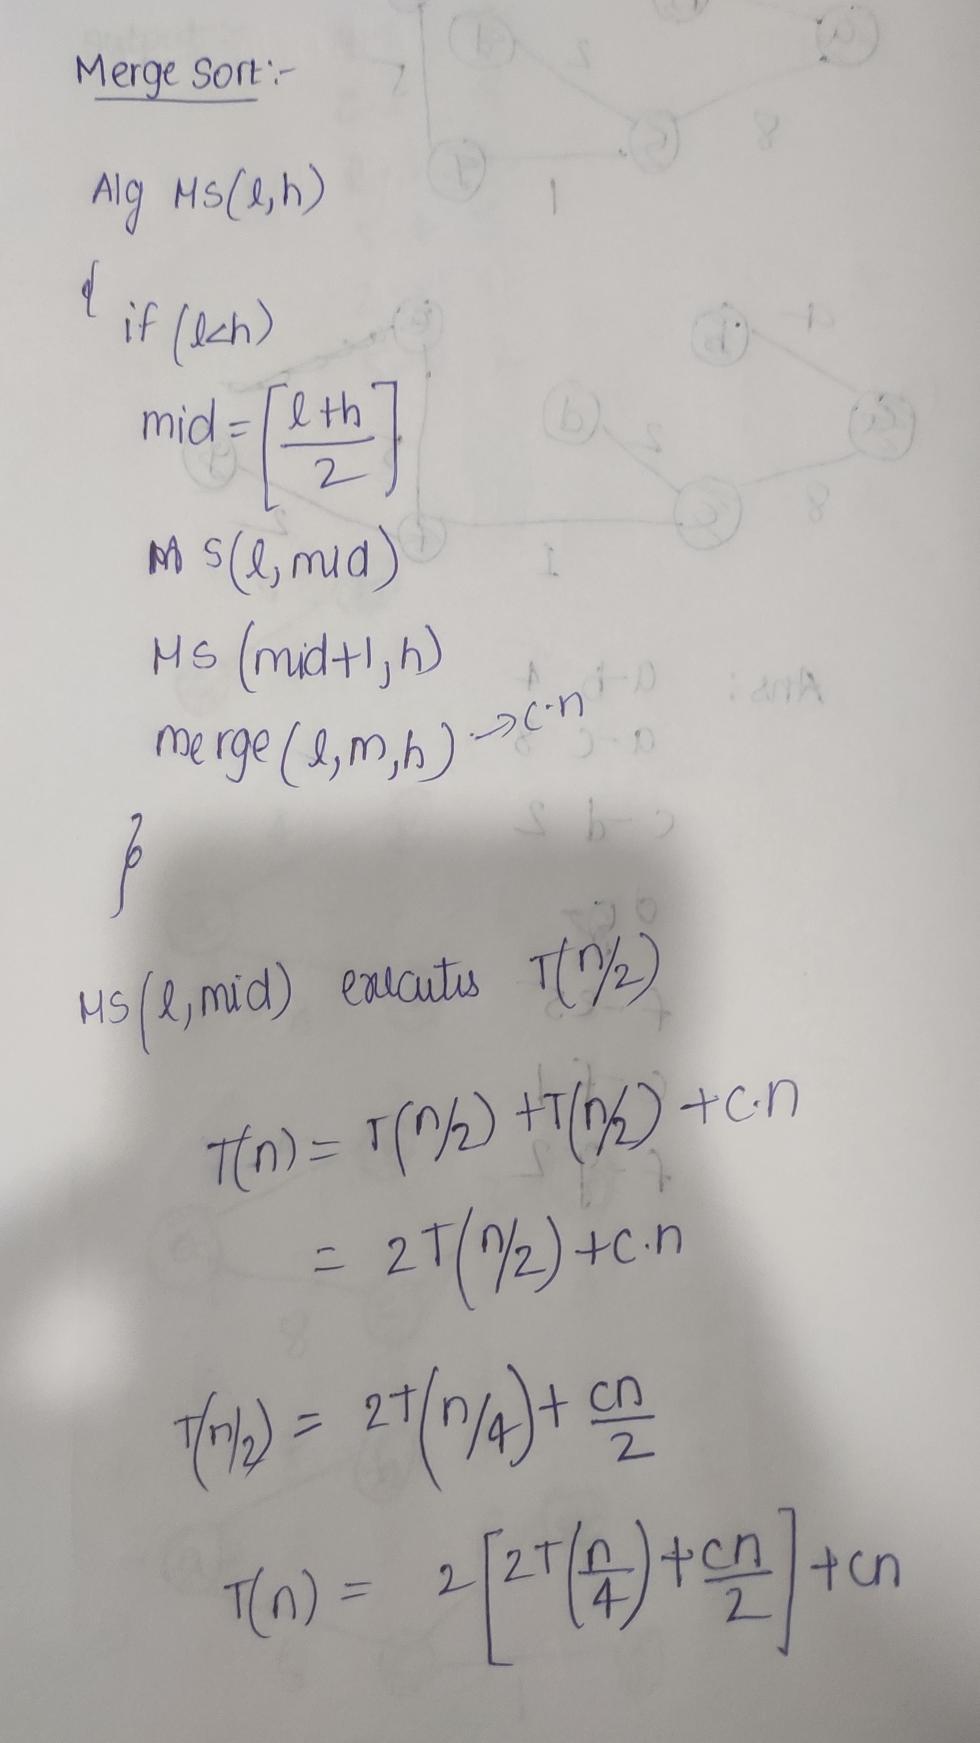 Merge Sort :-
Alg MS(l,h)
{
if (l<h)
mid = [l+h/2]
MS(l,mid)
MS (mid+1,h)
merge(l,m,h) → c·n
}
MS(l,mid) executes T(n/2)
T(n) = T(n/2) + T(n/2) + c·n
= 2T(n/2) + c·n
T(n/2) = 2T(n/4) + cn/2
T(n) = 2[2T(n/4) + cn/2] + cn